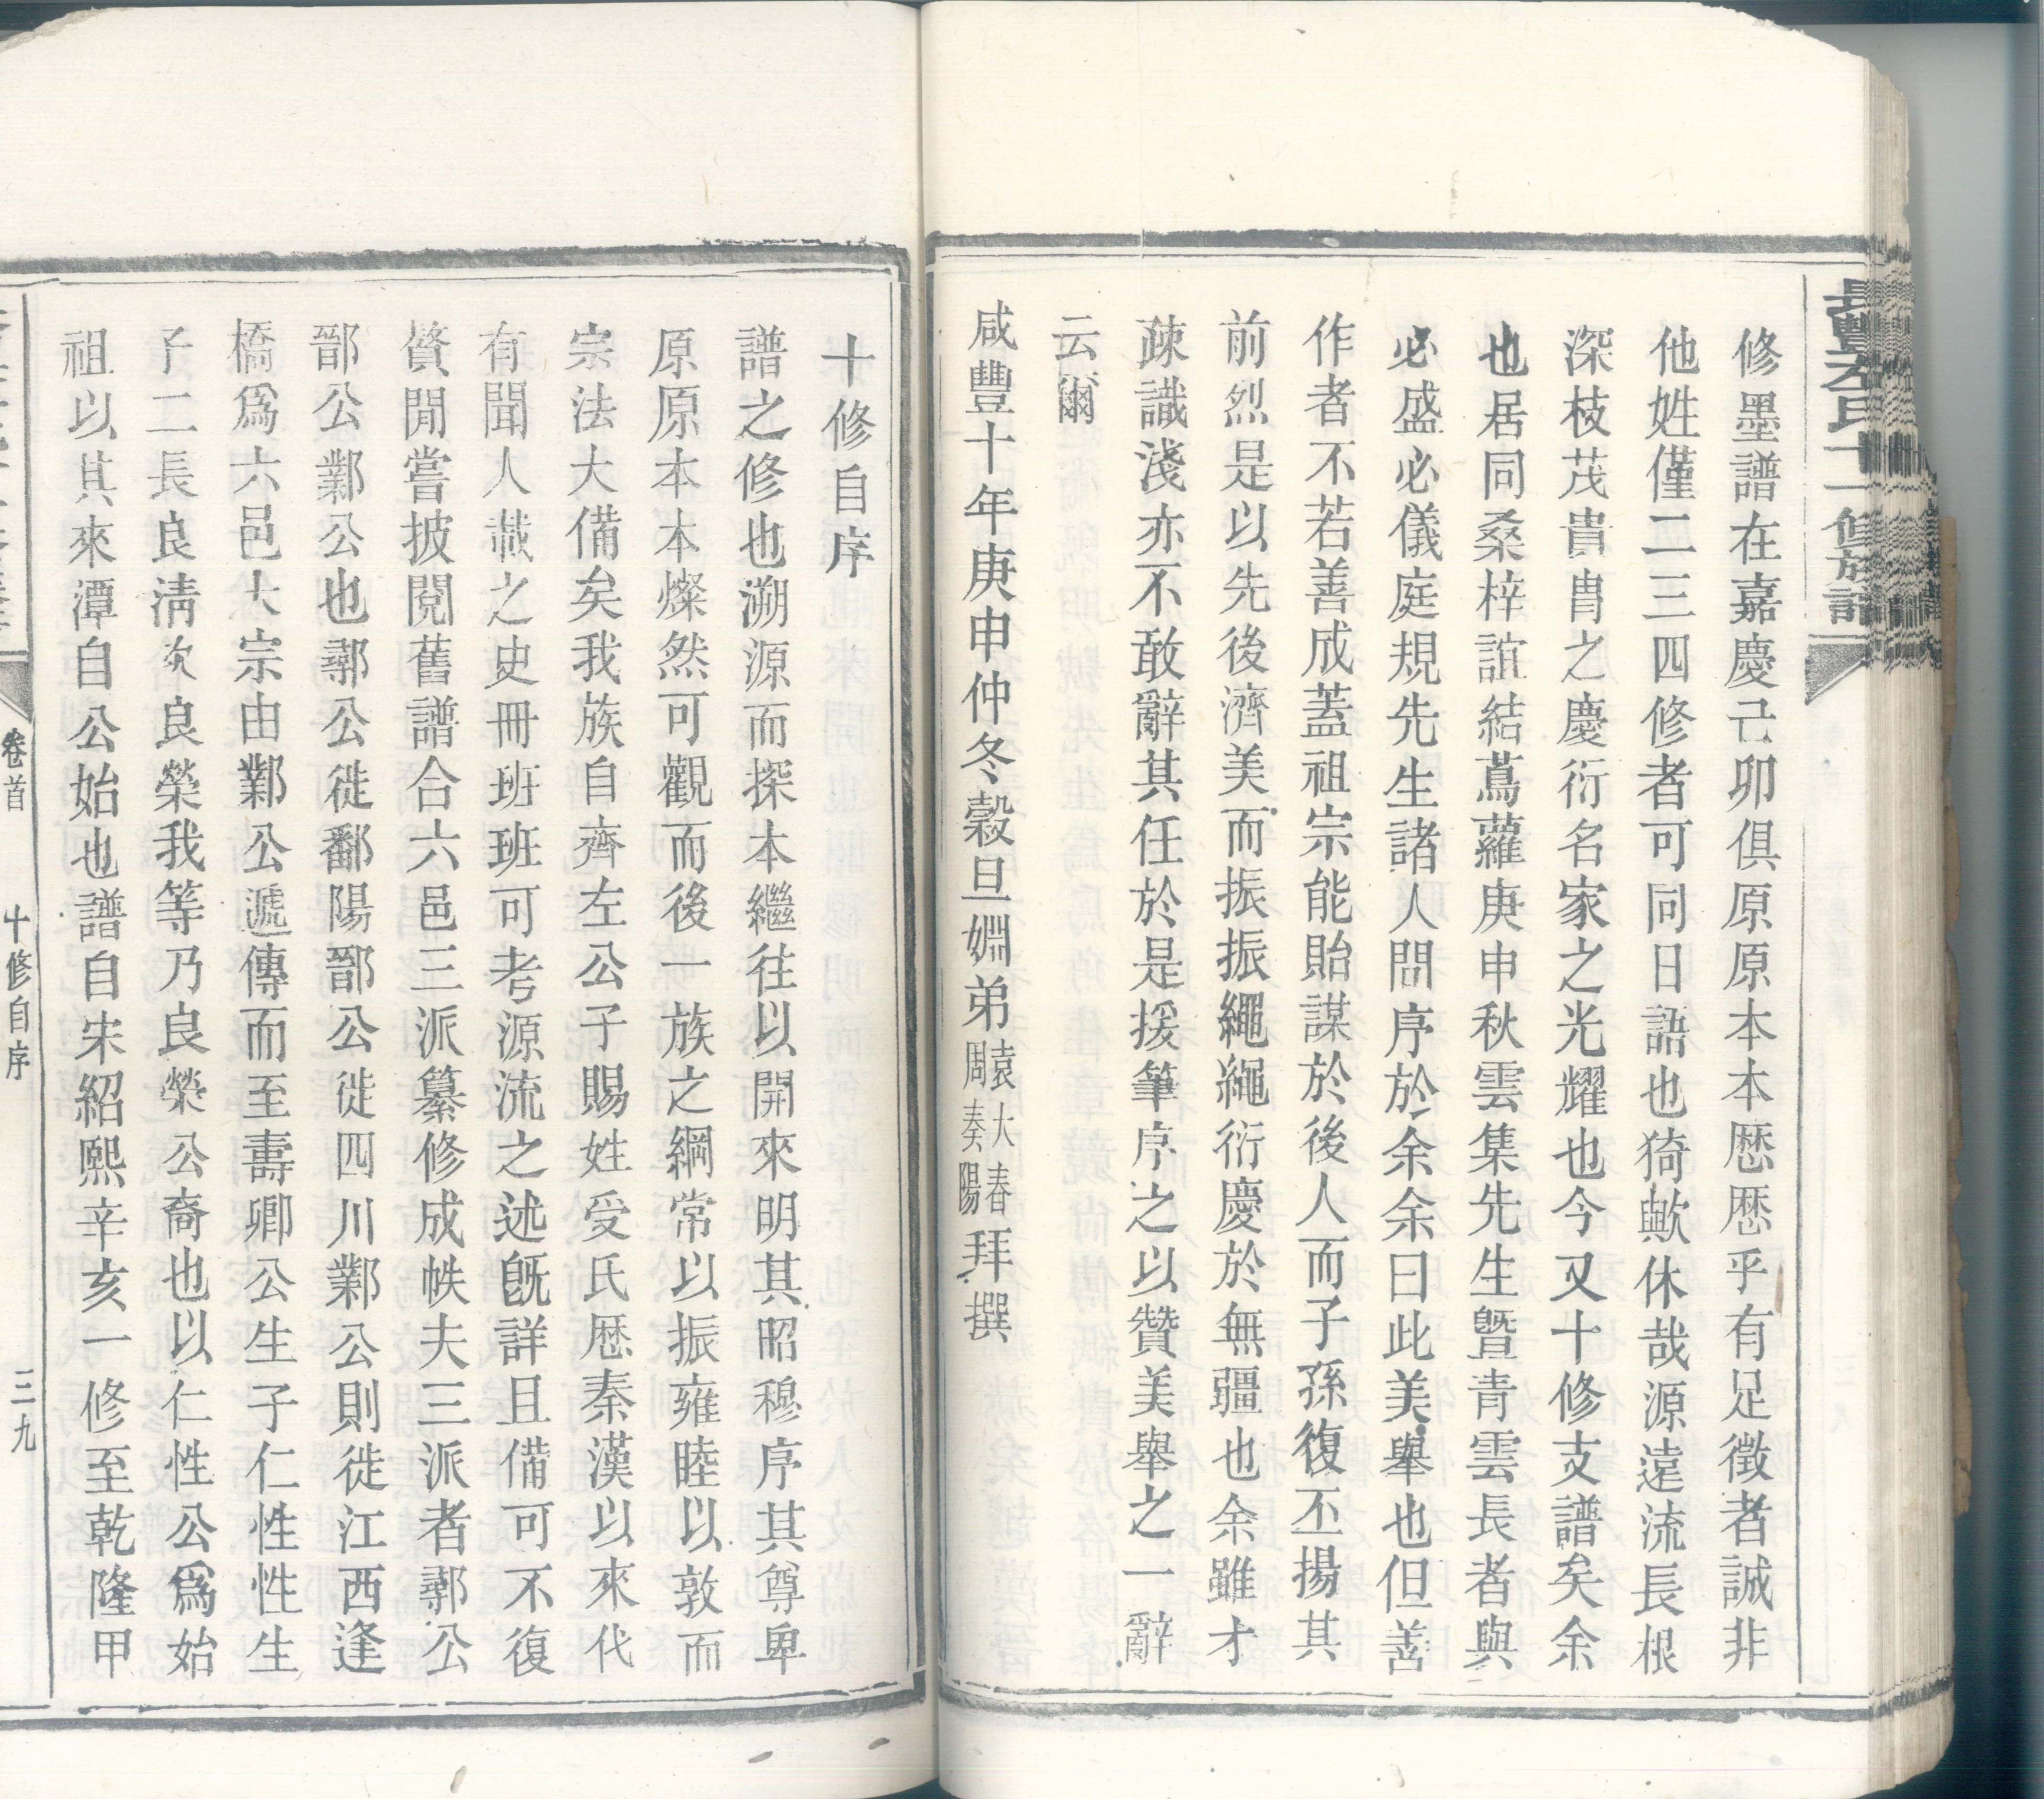 長豐左氏十一修族譜
修墨譜在嘉慶己卯俱原原本本歷歷乎有足徵者誠非
他姓僅二三四修者可同日語也猗歟休哉源遠流長根
深枝茂貴胄之慶衍名家之光耀也今又十修支譜矣余
也居同桑梓誼結蔦蘿庚申秋雲集先生曁青雲長者與
必盛必儀庭規先生諸人問序於余余曰此美舉也但善
作者不若善成蓋祖宗能貽謀於後人而子孫復丕揚其
前烈是以先後濟美而振振繩繩衍慶於無疆也余雖才
疎識淺亦不敢辭其任於是援筆序之以贊美舉之一辭
云爾
咸豐十年庚申仲冬穀旦婣弟袁大春周奏陽拜撰
十修自序
譜之修也溯源而探本繼往以開來明其昭穆序其尊卑
原原本本燦然可觀而後一族之綱常以振雍睦以敦而
宗法大備矣我族自齊左公子賜姓受氏歷秦漢以來代
有聞人載之史冊班班可考源流之述旣詳且備可不復
贅閒嘗披閱舊譜合六邑三派纂修成帙夫三派者鄩公
鄑公鄴公也鄩公徙鄱陽鄑公徙四川鄴公則徙江西逢
橋爲六邑大宗由鄴公遞傳而至壽卿公生子仁性性生
子二長良淸次良榮我等乃良榮公裔也以仁性公爲始
祖以其來潭自公始也譜自宋紹熙辛亥一修至乾隆甲
卷首
十修自序
三九